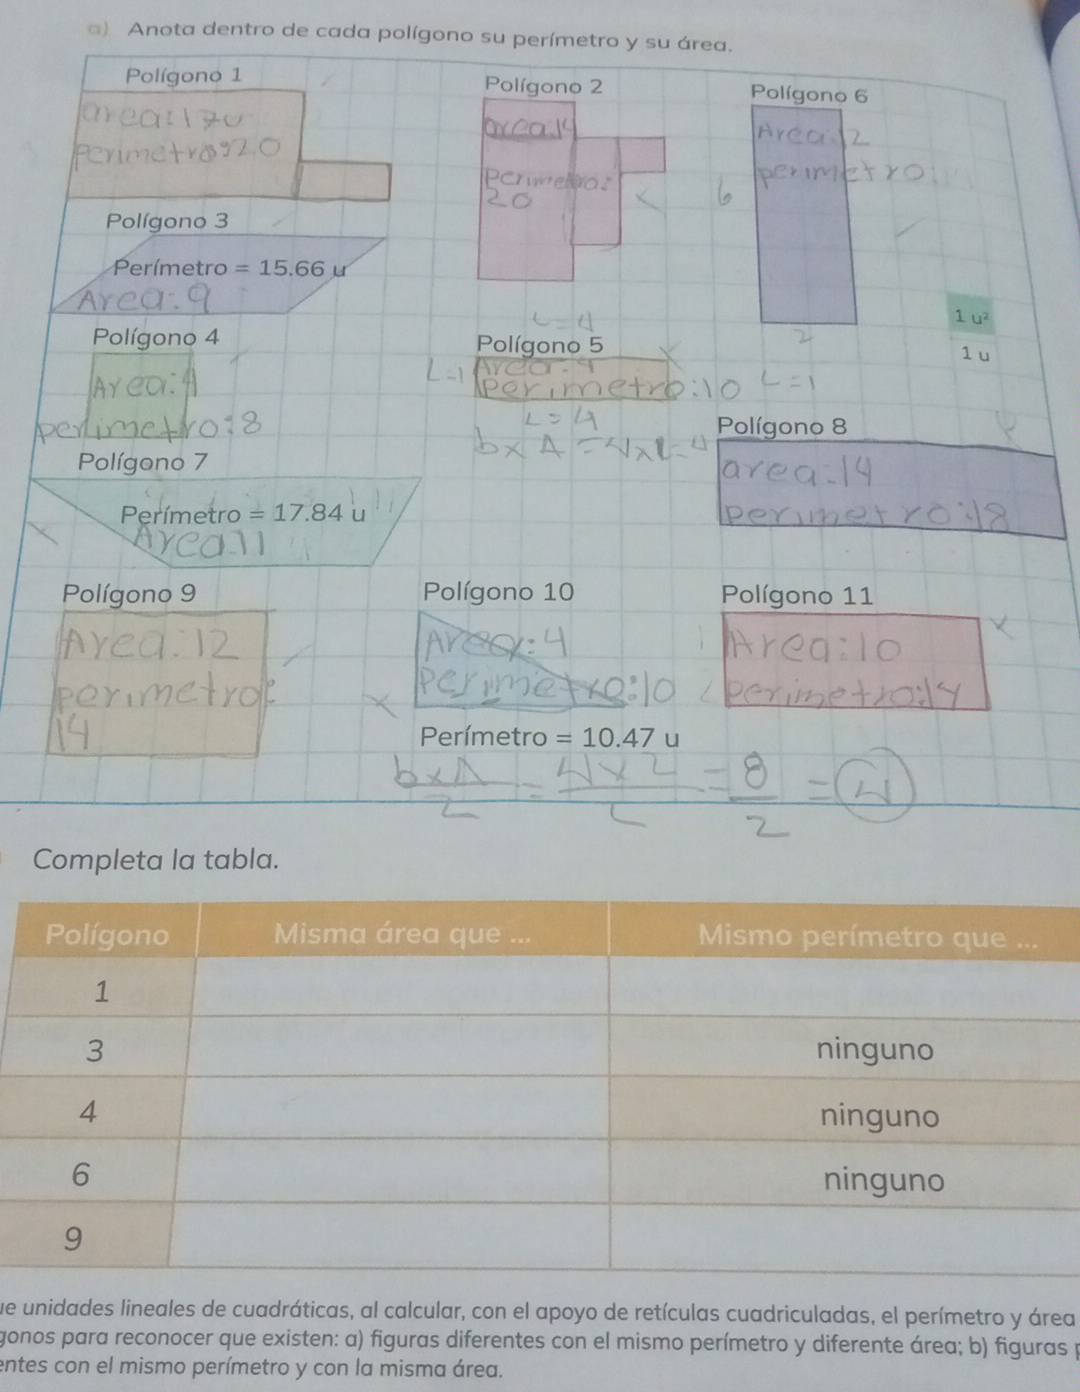 a) Anota dentro de cada polígono su perímetro y su área.
Polígono 1
area:
perimetro:20
Polígono 2
area:14
perimetro:
20
Polígono 6
Area:12
perimetro:
6
2
Polígono 3
Perímetro = 15.66 u
Area: 9
1 u²
1 u
Polígono 4
Area:4
perimetro:8
L=4
Polígono 5
L=1
Area:4
perimetro:10
L=1
L=4
bxA=4x1=4
Polígono 8
area:14
perimetro:18
Polígono 7
Perímetro = 17.84 u
Area:11
Polígono 9
Area:12
perimetro:
14
Polígono 10
Area:4
perimetro:10
Perímetro = 10.47 u
Polígono 11
Area:10
perimetro:14
bxA/2 = 4x2/2 = 8/2 = 4
Completa la tabla.
Polígono Misma área que ... Mismo perímetro que ...
1
3 ninguno
4 ninguno
6 ninguno
9
unidades lineales de cuadráticas, al calcular, con el apoyo de retículas cuadriculadas, el perímetro y área
para reconocer que existen: a) figuras diferentes con el mismo perímetro y diferente área; b) figuras
con el mismo perímetro y con la misma área.